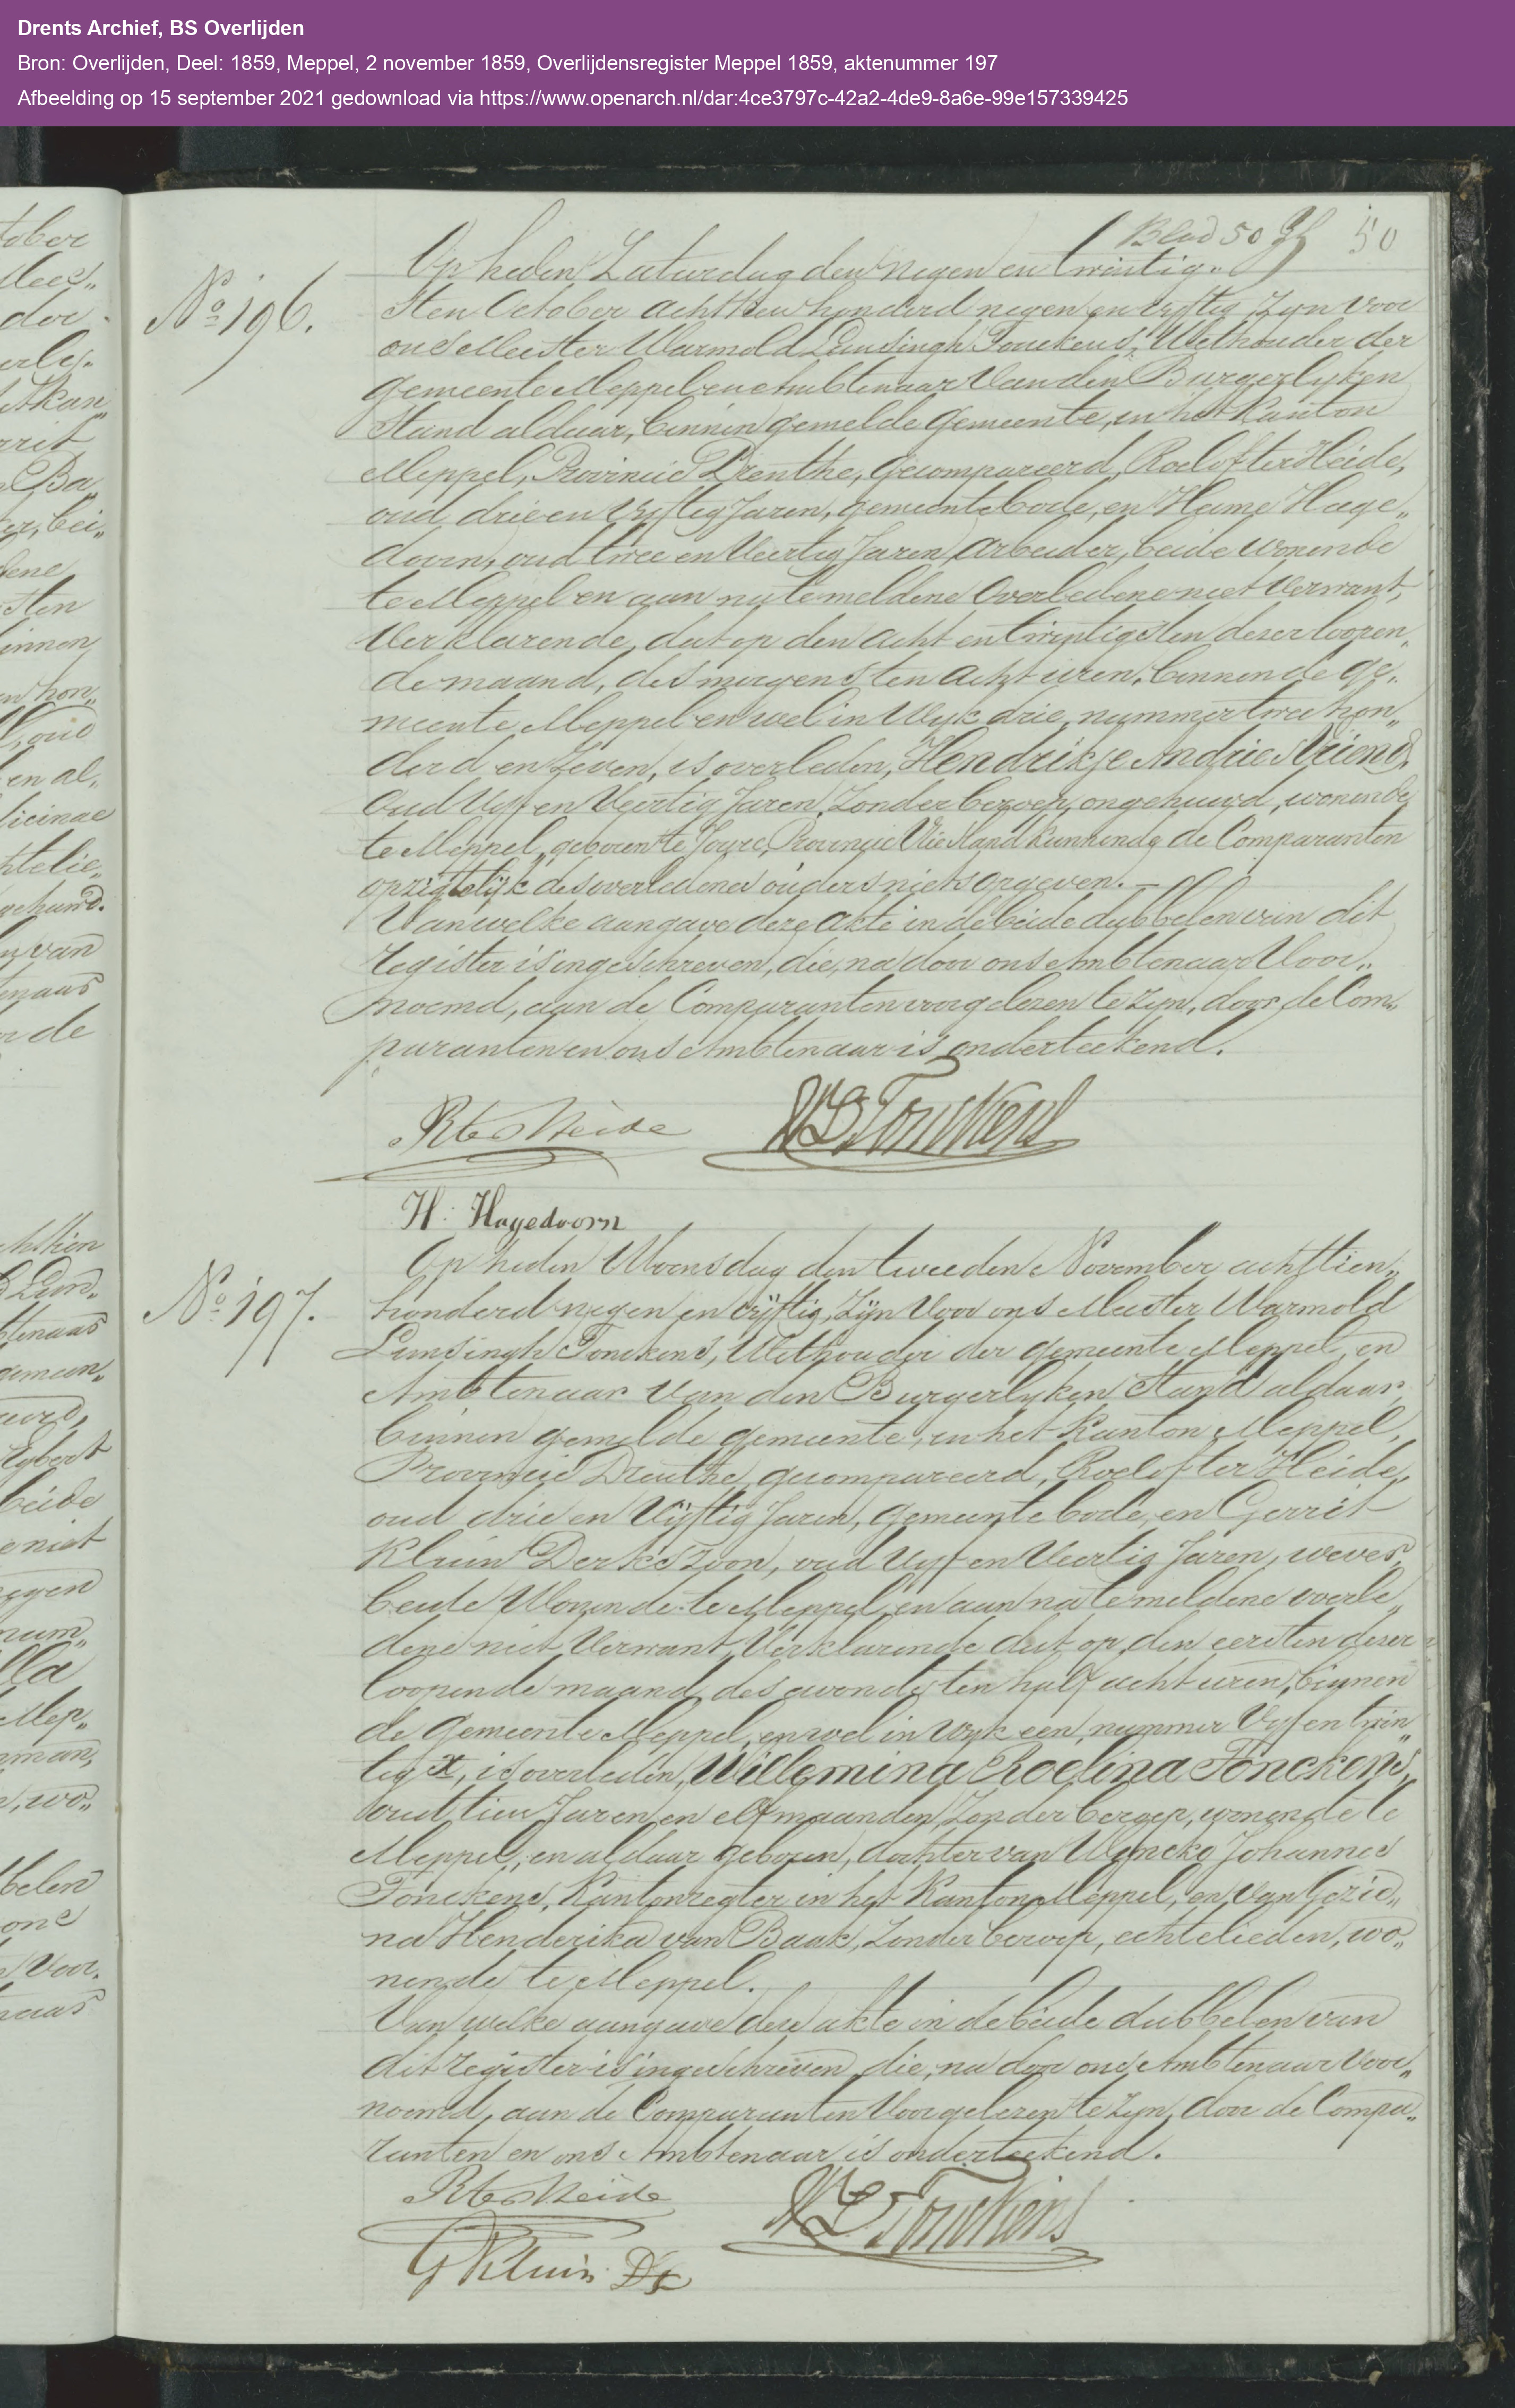 Drents Archief, BS Overlijden
Bron: Overlijden, Deel: 1859, Meppel, 2 november 1859, Overlijdensregister Meppel 1859, aktenummer 197
Afbeelding op 15 september 2021 gedownload via https://www.openarch.nl/dar:4ce3797c-42a2-4de9-8a6e-99e157339425
Blad 50 50
No 196.
Op heden Zaturdag den negen en twintig„
sten October achttien honderd negen en vyftig zyn voor
ons Meester Warmold Lunsingh Tonckens, Wethouder der
gemeente Meppel en Ambtenaar van den Burgerlyken
Stand aldaar, binnen gemelde gemeente, in het Kanton
Meppel, Provincie Drenthe, gecompareerd, Roelof ter Heide,
oud drie en vyftig Jaren, gemeentebode, en Harme Hage„
doorn, oud twee en veertig Jaren, arbeider, beide wonende
te Meppel en aan na te meldene Overledene niet verwant,
verklarende, dat op den acht en twintigsten dezer loopen„
de maand, des morgens ten acht uren, binnen de ge„
meente Meppel en wel in Wyk drie, nummer twee hon„
derd en zeven, is overleden, Hendrikje Andries Vriend,
oud vyf en veertig Jaren, zonder beroep, ongehuwd, wonende
te Meppel, geboren te Joure, Provincie Vriesland kunnende de Comparanten
opzigtelijk des overledenes ouders niets opgeven.
Van welke aangave deze akte in de beide dubbelen van dit
register is ingeschreven, die, na door ons Ambtenaar voor„
noemd, aan de Comparanten voorgelezen te zyn, door de Com„
paranten en ons Ambtenaar is onderteekend.
R ter Heide WLTonckens
H: Hagedoorn
No 197.
Op heden Woensdag den tweeden November achttien„
honderd negen en vijftig, zijn voor ons Meester Warmold
Lunsingh Tonckens, Wethouder der gemeente Meppel en
Ambtenaar van den Burgerlyken Stand aldaar,
binnen gemelde gemeente, in het Kanton Meppel,
Provincie Drenthe, gecompareerd, Roelof ter Heide,
oud drie en vijftig Jaren, gemeentebode, en Gerrit
Kluin Derkszoon, oud vyf en veertig Jaren, wever,
beide wonende te Meppel, en aan na te meldene overle„
dene niet verwant, verklarende dat op den eersten dezer
loopende maand, des avonds ten half acht uren, binnen
de gemeente Meppel, en wel in wyk een, nummer vyf en twin„
tig x, is overleden, Willemina Roelina Tonckens,
oud tien Jaren en elf maanden, zonder beroep, wonende te
Meppel, en aldaar geboren, dochter van Wyncko Johannes
Tonckens, Kantonregter in het Kanton Meppel, en van Gezie„
na Henderika van Baak, zonder beroep, echtelieden, wo„
nende te Meppel.
Van welke aangave deze akte in de beide dubbelen van
dit register is ingeschreven, die, na door ons Ambtenaar voor„
noemd, aan de Comparanten voorgelezen te zyn, door de Compa„
ranten en ons Ambtenaar is onderteekend.
R ter Heide WLTonckens
G Kluin Dz